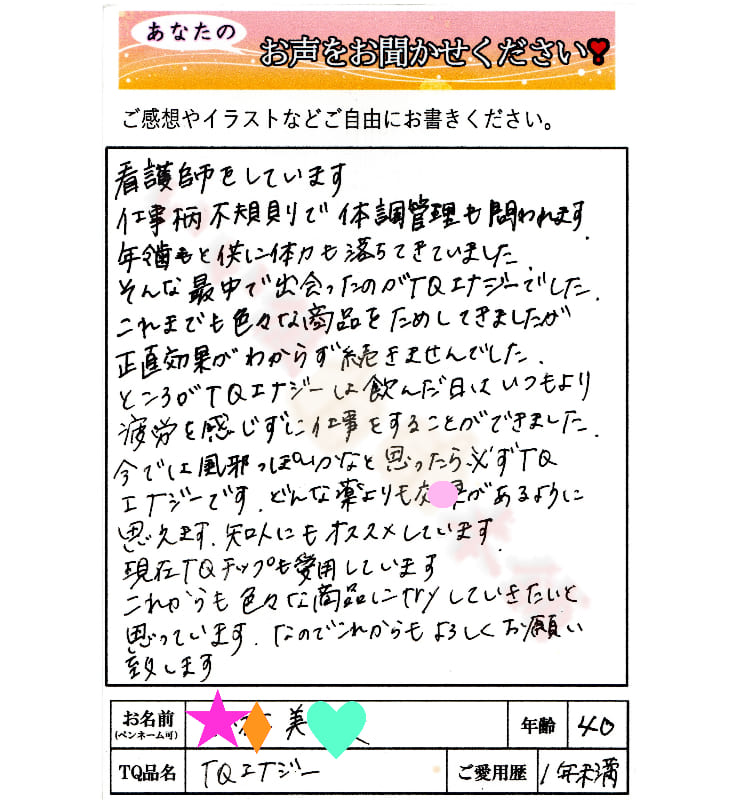 あなたの
お声をお聞かせください
ご感想やイラストなどご自由にお書きください。
看護師をしています
仕事柄不規則で体調管理も問われます.
年齢もと供に体力も落ちてきていました.
そんな最中で出会ったのがTQエナジーでした.
これまでも色々な商品をためしてきましたが
正直効果がわからず続きませんでした.
ところがTQエナジーは飲んだ日はいつもより
疲労を感じずに仕事をすることができました.
今では風邪っぽいかなと思ったら必ずTQ
エナジーです.どんな薬よりも があるように
思えます.知人にもオススメしています.
現在TQチップも愛用しています
これからも色々な商品にtryしていきたいと
思っています.なのでこれからもよろしくお願い
致します
お名前
(ペンネーム可)
美
年齢
40
TQ品名
TQエナジー
ご愛用歴
1年未満